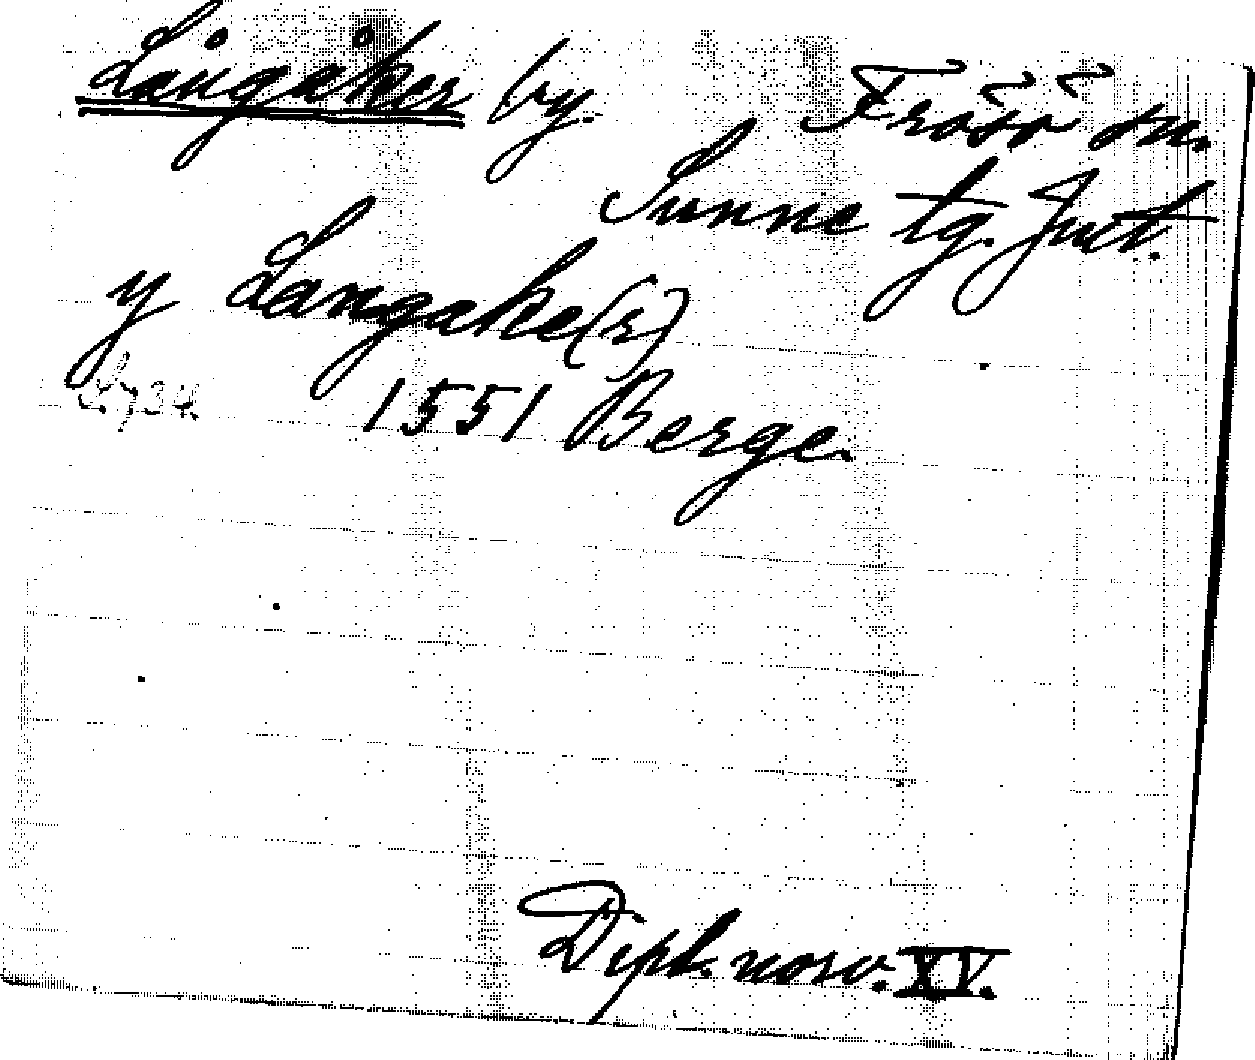 Långåker by. Frösö sn.
Sunne tg. Jmt.
y Langake(r)
s. 734. 1551 Berge.
Dipl. norv. XV.